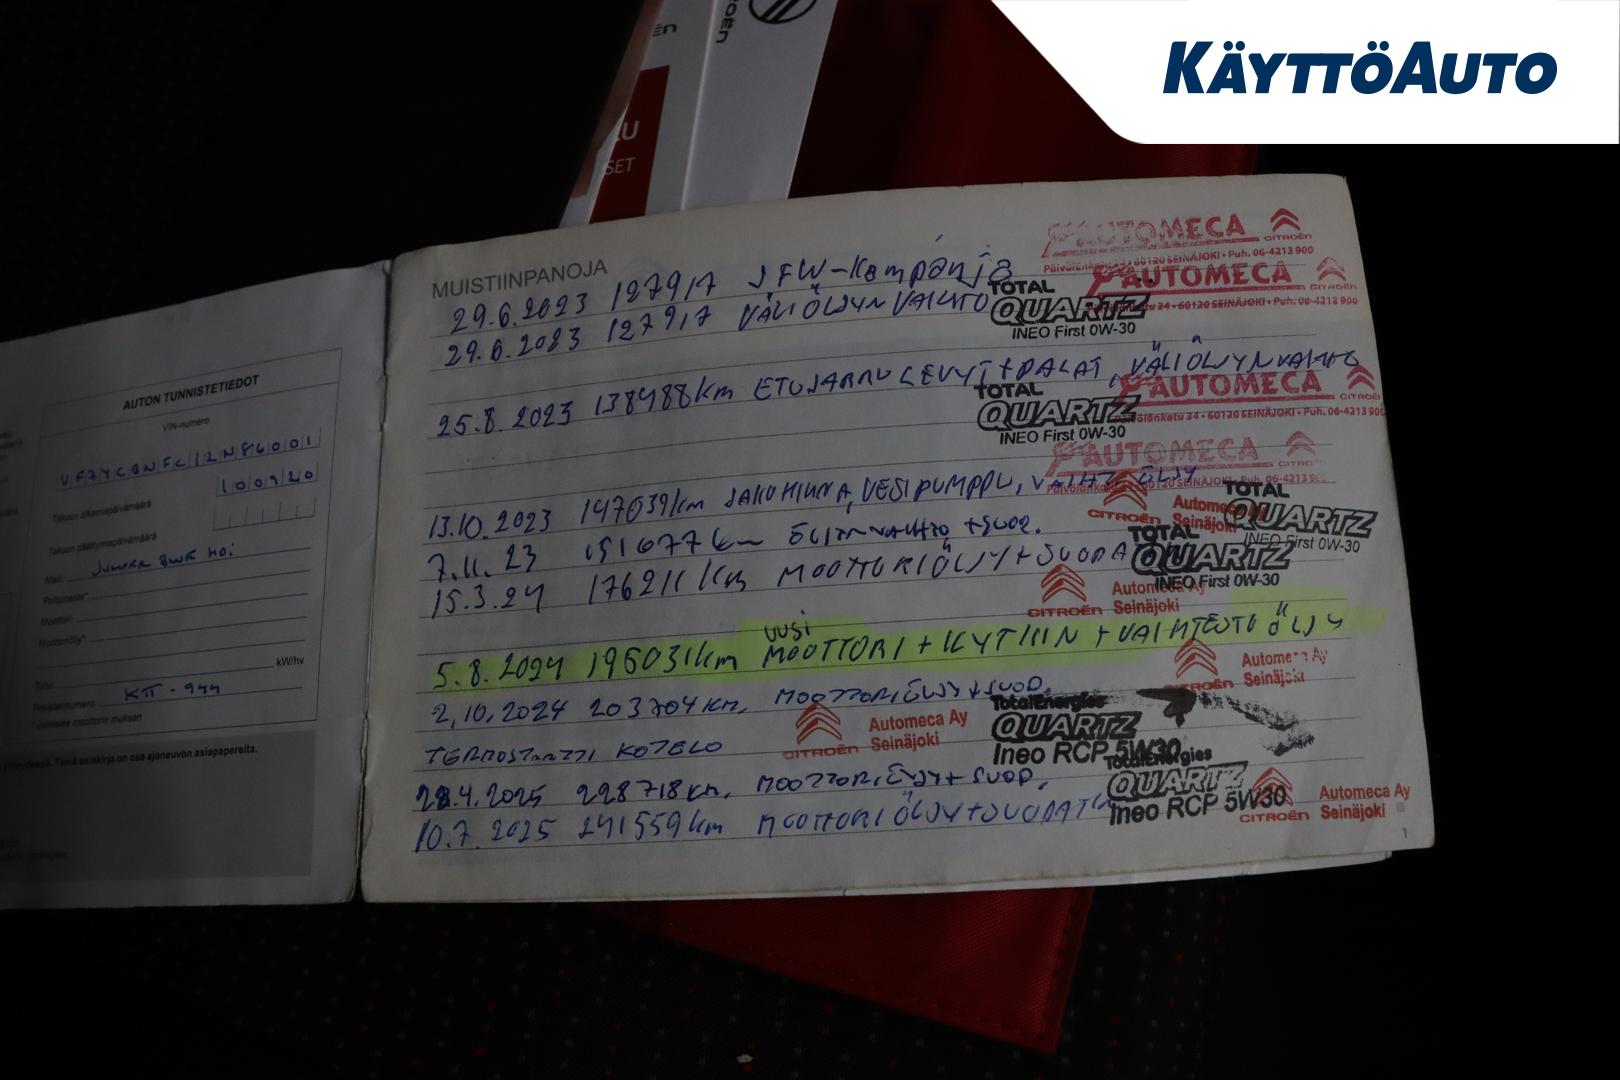 KÄYTTÖAUTO
MUISTIINPANOJA
29.6.2023 127917 JFW-kampanja
29.6.2023 127917 VÄLIÖLJYN VAIHTO
25.8.2023 138488km ETUJARRULEVYT+PALAT, VÄLIÖLJYNVAIHTO
13.10.2023 147639km JAKOHIHNA, VESIPUMPPU, VAIHT. ÖLJY
7.11.23 151677km ÖLJYNVAIHTO +SUOD.
15.3.24 176211km MOOTTORIÖLJY+SUODA
UUSI
5.8.2024 196031km MOOTTORI + KYTKIN + VAIHTEISTO ÖLJY
2.10.2024 203704km, MOOTTORIÖLJY+SUOD.
TERMOSTAATTI KOTELO
28.4.2025 228718km, MOOTTORIÖLJY+SUOD.
10.7.2025 241559km MOOTTORIÖLJY+SUODATIN
AUTOMECA
CITROËN
Päivölänkatu 34 • 60120 SEINÄJOKI • Puh. 06-4213 900
AUTOMECA
Päivölänkatu 34 • 60120 SEINÄJOKI • Puh. 06-4213 900
TOTAL
QUARTZ
INEO First 0W-30
AUTOMECA
CITROËN
Päivölänkatu 34 • 60120 SEINÄJOKI • Puh. 06-4213 900
TOTAL
QUARTZ
INEO First 0W-30
AUTOMECA
CITROËN
Päivölänkatu 34 • 60120 SEINÄJOKI • Puh. 06-4213
CITROËN
Automeca
Seinäjoki
TOTAL
QUARTZ
INEO First 0W-30
TOTAL
QUARTZ
INEO First 0W-30
CITROËN
Automeca Ay
Seinäjoki
CITROËN
Automeca Ay
Seinäjoki
CITROËN
Automeca Ay
Seinäjoki
TotalEnergies
QUARTZ
Ineo RCP 5W30
TotalEnergies
QUARTZ
Ineo RCP 5W30
CITROËN
Automeca Ay
Seinäjoki
1
AUTON TUNNISTETIEDOT
VIN-numero
VF7YCBNFC12N86001
Takuun alkamispäivämäärä
100920
Takuun päättymispäivämäärä
Malli: JUMPER BLUE HDi
Polttoneste*:
Moottori:
Moottoriöljy*:
Teho: kW/hv
Rekisterinumero: KTI-944
*valmistee moottorin mukaan
yhteydessä. Tämä asiakirja on osa ajoneuvon asiapapereita.